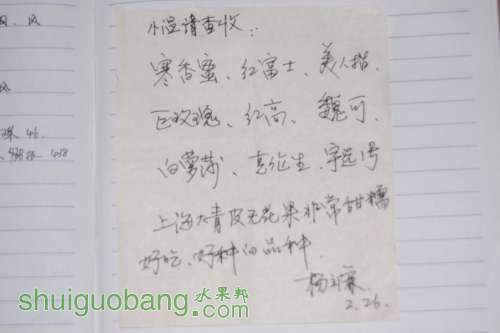 小温请查收:
寒香蜜、红富士、美人指、
巨玫瑰、红高、魏可
白萝莎、克伦生、宇选1号
上海大青皮无花果非常甜糯
好吃、好种的品种.
2.26.
shuiguobang.com
水果邦